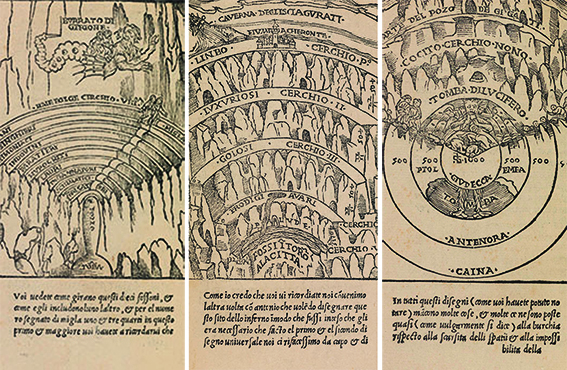 ENTRATO DI
GIRONE
MALE BOLGE CERCHIO VIII
Voi vedete come girano questi dieci fossoni, &
come egli includono luno laltro, & per el nume
ro segnato di migla uno & tre quarti in questo
primo & maggiore voi havete a ricordarvi che
CAVERNA DEGLI SCIAGURATI
FIUME ACHERONTE
LINBO CERCHIO P.
LUXURIOSI CERCHIO II
GOLOSI CERCHIO III
PRODIGI AVARI
CERCHIO
FOSSI ITORO
ALA CITTA
CERCHIO
Come io credo che voi vi ricordiate noi convenimo
laltra volta con antonio che volendo disegnare que
sto sito dello inferno in modo che fussi inteso che gli
era necessario che facto el primo & el sicondo di
segno universale noi ci rifacessimo da capo & di
DEL POZO DE GI GA
COCITO CERCHIO NONO
TOMBA DI LUCIFERO
500 500 500 500
PTOL
GIUDECCA
TOMBA
ANTENORA
CAINA
In tutti questi disegni (come voi havete potuto no
tare) mancono molte cose, & molte ce ne sono poste
quasi (come vulgarmente si dice) alla burchia
rispecto alla scarsita delli spatii & alla impossi
bilita della